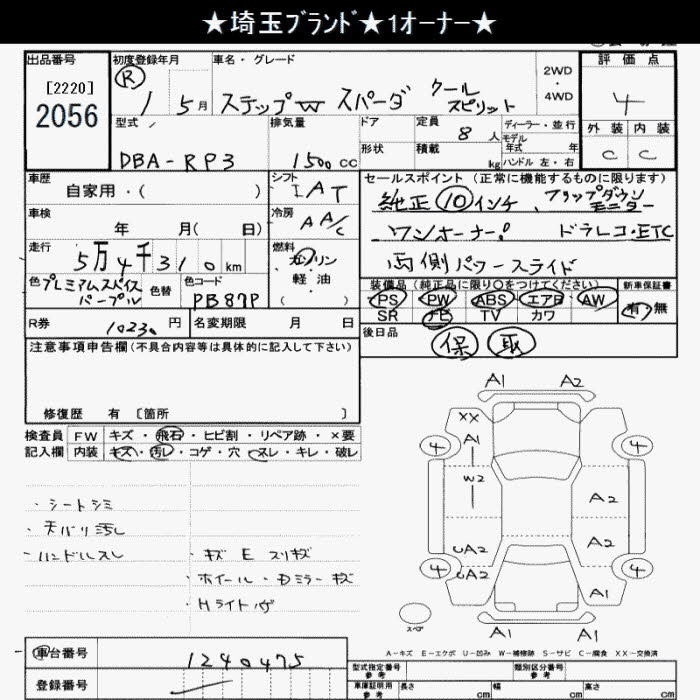 ★埼玉ブランド★1オーナー★
出品番号 初度登録年月 車名・グレード 評価点
[2220] 2056
R 1 5月 ステップW スパーダ クールスピリット 2WD・4WD 4
型式 排気量 ドア 定員 8人 ディーラー・並行 外装 内装
モデル年式 年
DBA-RP3 1500cc 形状 積載 kg ハンドル 左・右 C C
車歴 シフト セールスポイント(正常に機能するものに限ります)
自家用・( ) IAT 純正⑩インチ、フリップダウンモニター
車検 冷房
年 月( 日) AA/C ワンオーナー! ドラレコ・ETC
走行 燃料
5万4千310km ガソリン・軽油 両側パワースライド
色 プレミアムスパイスパープル 色替 色コード PB87P
装備品(純正品に限り○をつけてください) 新車保証書
PS PW ABS エアB AW 有・無
SR TV カワ
R券 10230円 名変期限 月 日 後日品 保 取
注意事項申告欄(不具合内容等は具体的に記入して下さい)
修復歴 有〔箇所 〕
検査員 FW キズ・飛石・ヒビ割・リペア跡・×要
記入欄 内装 キズ・汚レ・コゲ・穴・スレ・キレ・破レ
・シートシミ
・天バリ汚レ
・ハンドルスレ ・キズ E スリキズ
・ホイール・Dミラーキズ
・Hライト
A1 A2
XX
4 A1 4
W2 A2
UA2 A2
4 UA2 4
A1
スペア
A-キズ E-エクボ U-凹み W-補修跡 S-サビ C-腐食 XX-交換済
車台番号 1240475
登録番号
型式指定番号 参考 類別区分番号 参考
車庫証明用 参考 長さ cm 幅 cm 高さ cm